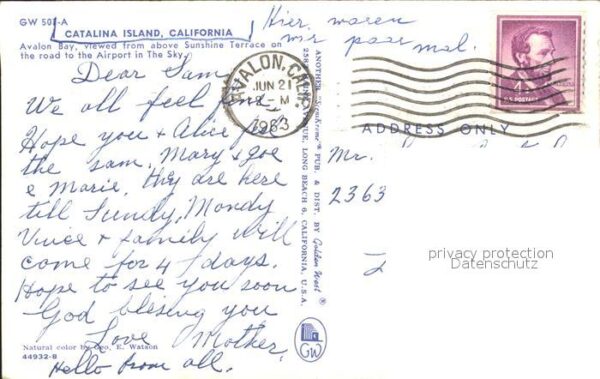 GW 503-A
CATALINA ISLAND, CALIFORNIA
Avalon Bay, viewed from above Sunshine Terrace on
the road to the Airport in The Sky.
Hier waren
wir paar mal.
Dear Sam
We all feel fine
Hope you & Alice feel
the sam. Mary & Joe
& Marie. they are here
till Sundy, Mondy
Vince & family will
come for 4 days.
Hope to see you soon
God blesing you
Love Mother.
Hello from all.
Natural color by Geo. E. Watson
44932-B
AVALON, CAL.
JUN 21
-M
1963
4c
U.S. POSTAGE
ANOTHER PUB. & DIST. BY Golden West
AVENUE, LONG BEACH 6, CALIFORNIA, U.S.A.
GW
ADDRESS ONLY
Mr.
2363
privacy protection
Datenschutz